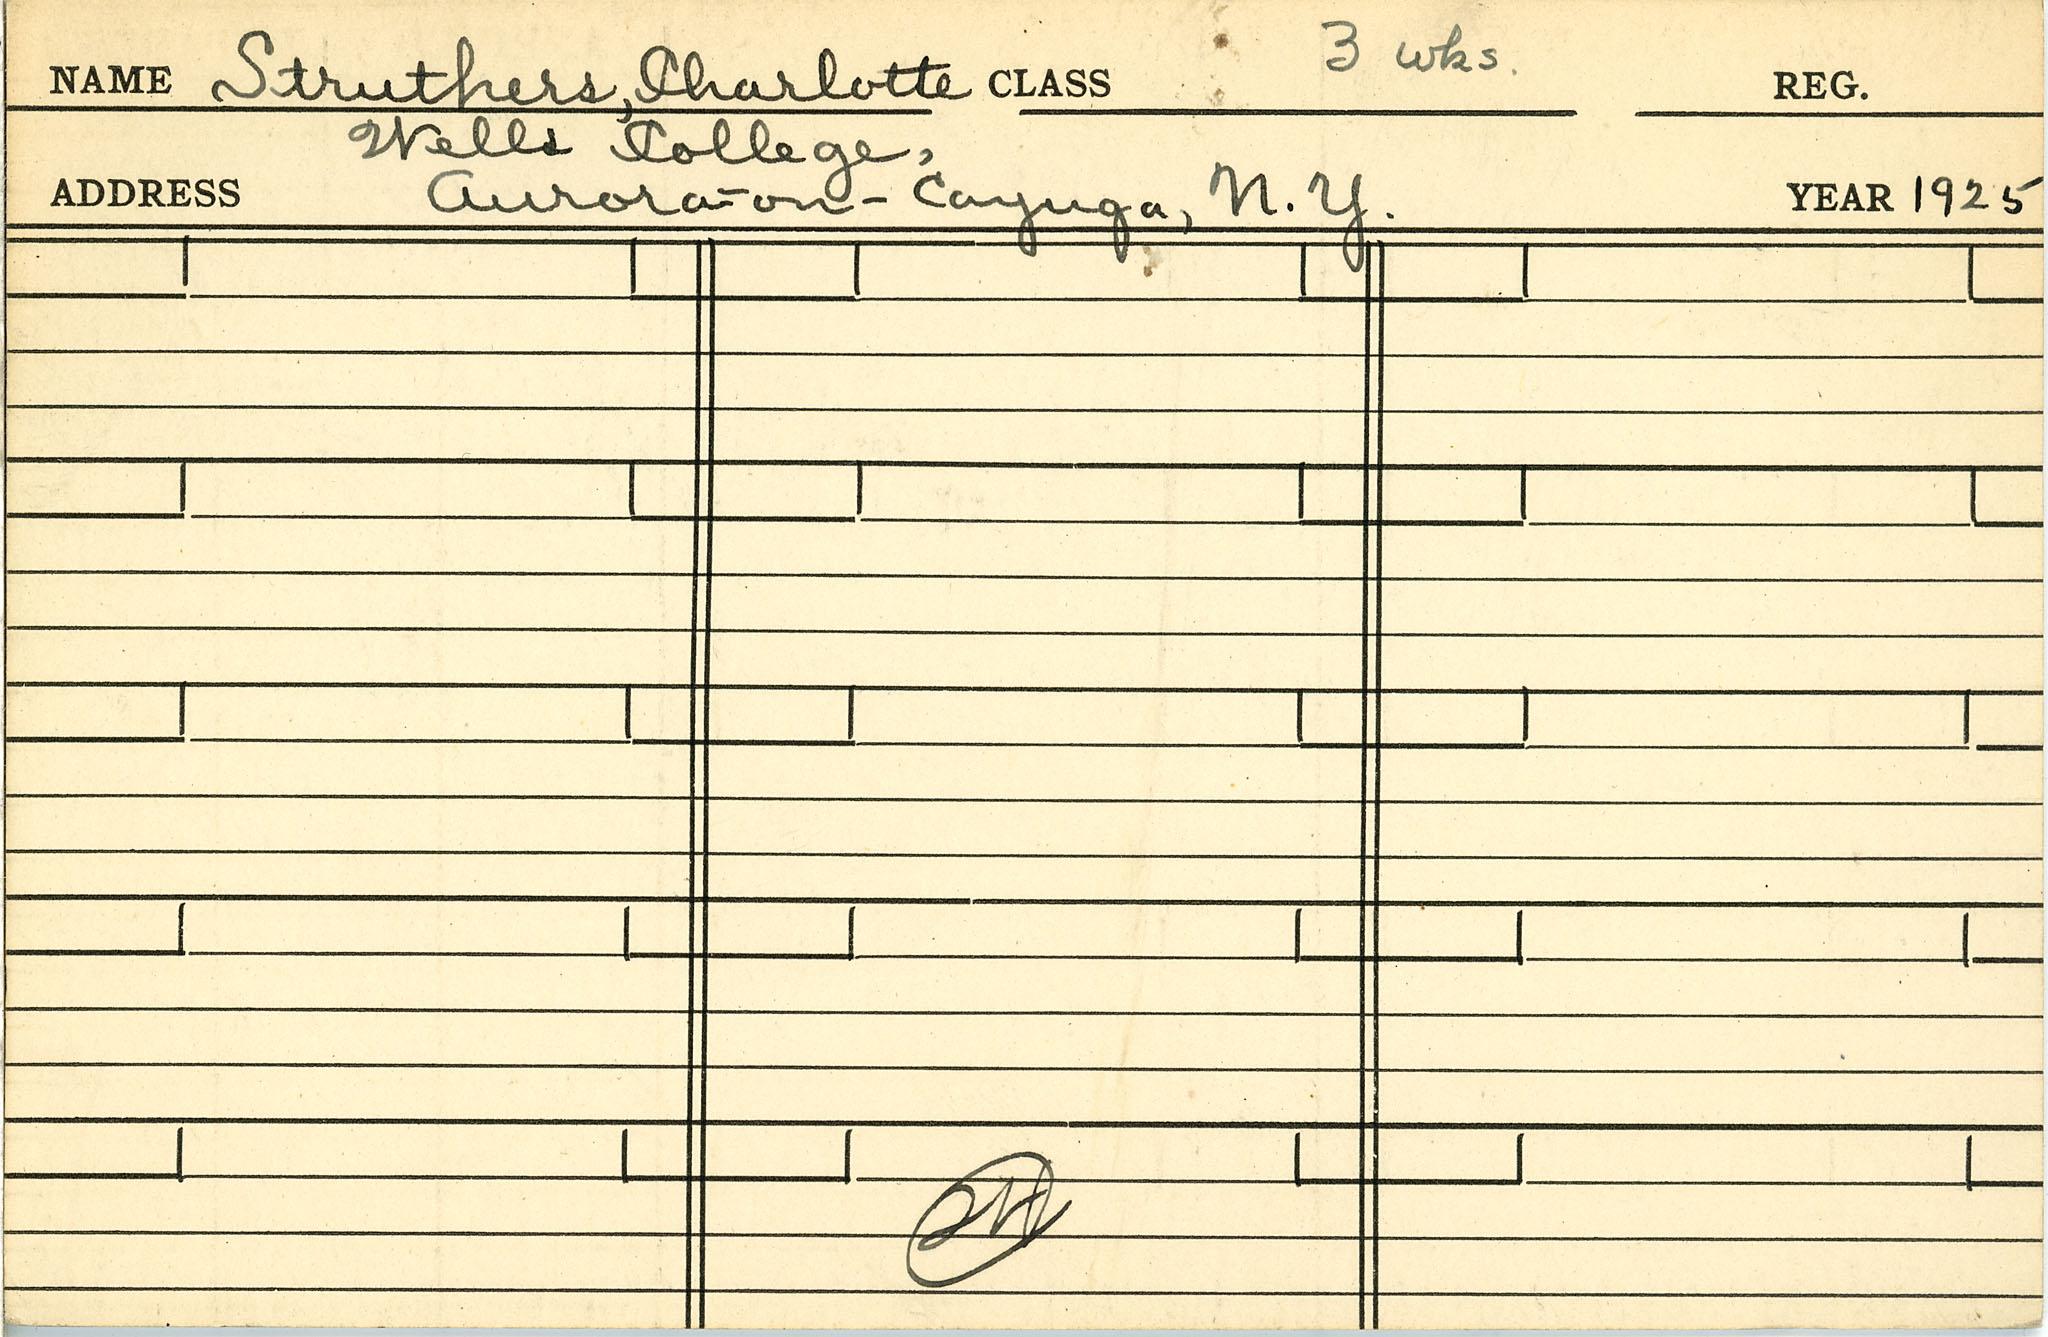 NAME Struthers, Charlotte CLASS 3 wks. REG.
Wells College,
ADDRESS Aurora-on-Cayuga, N.Y. YEAR 1925